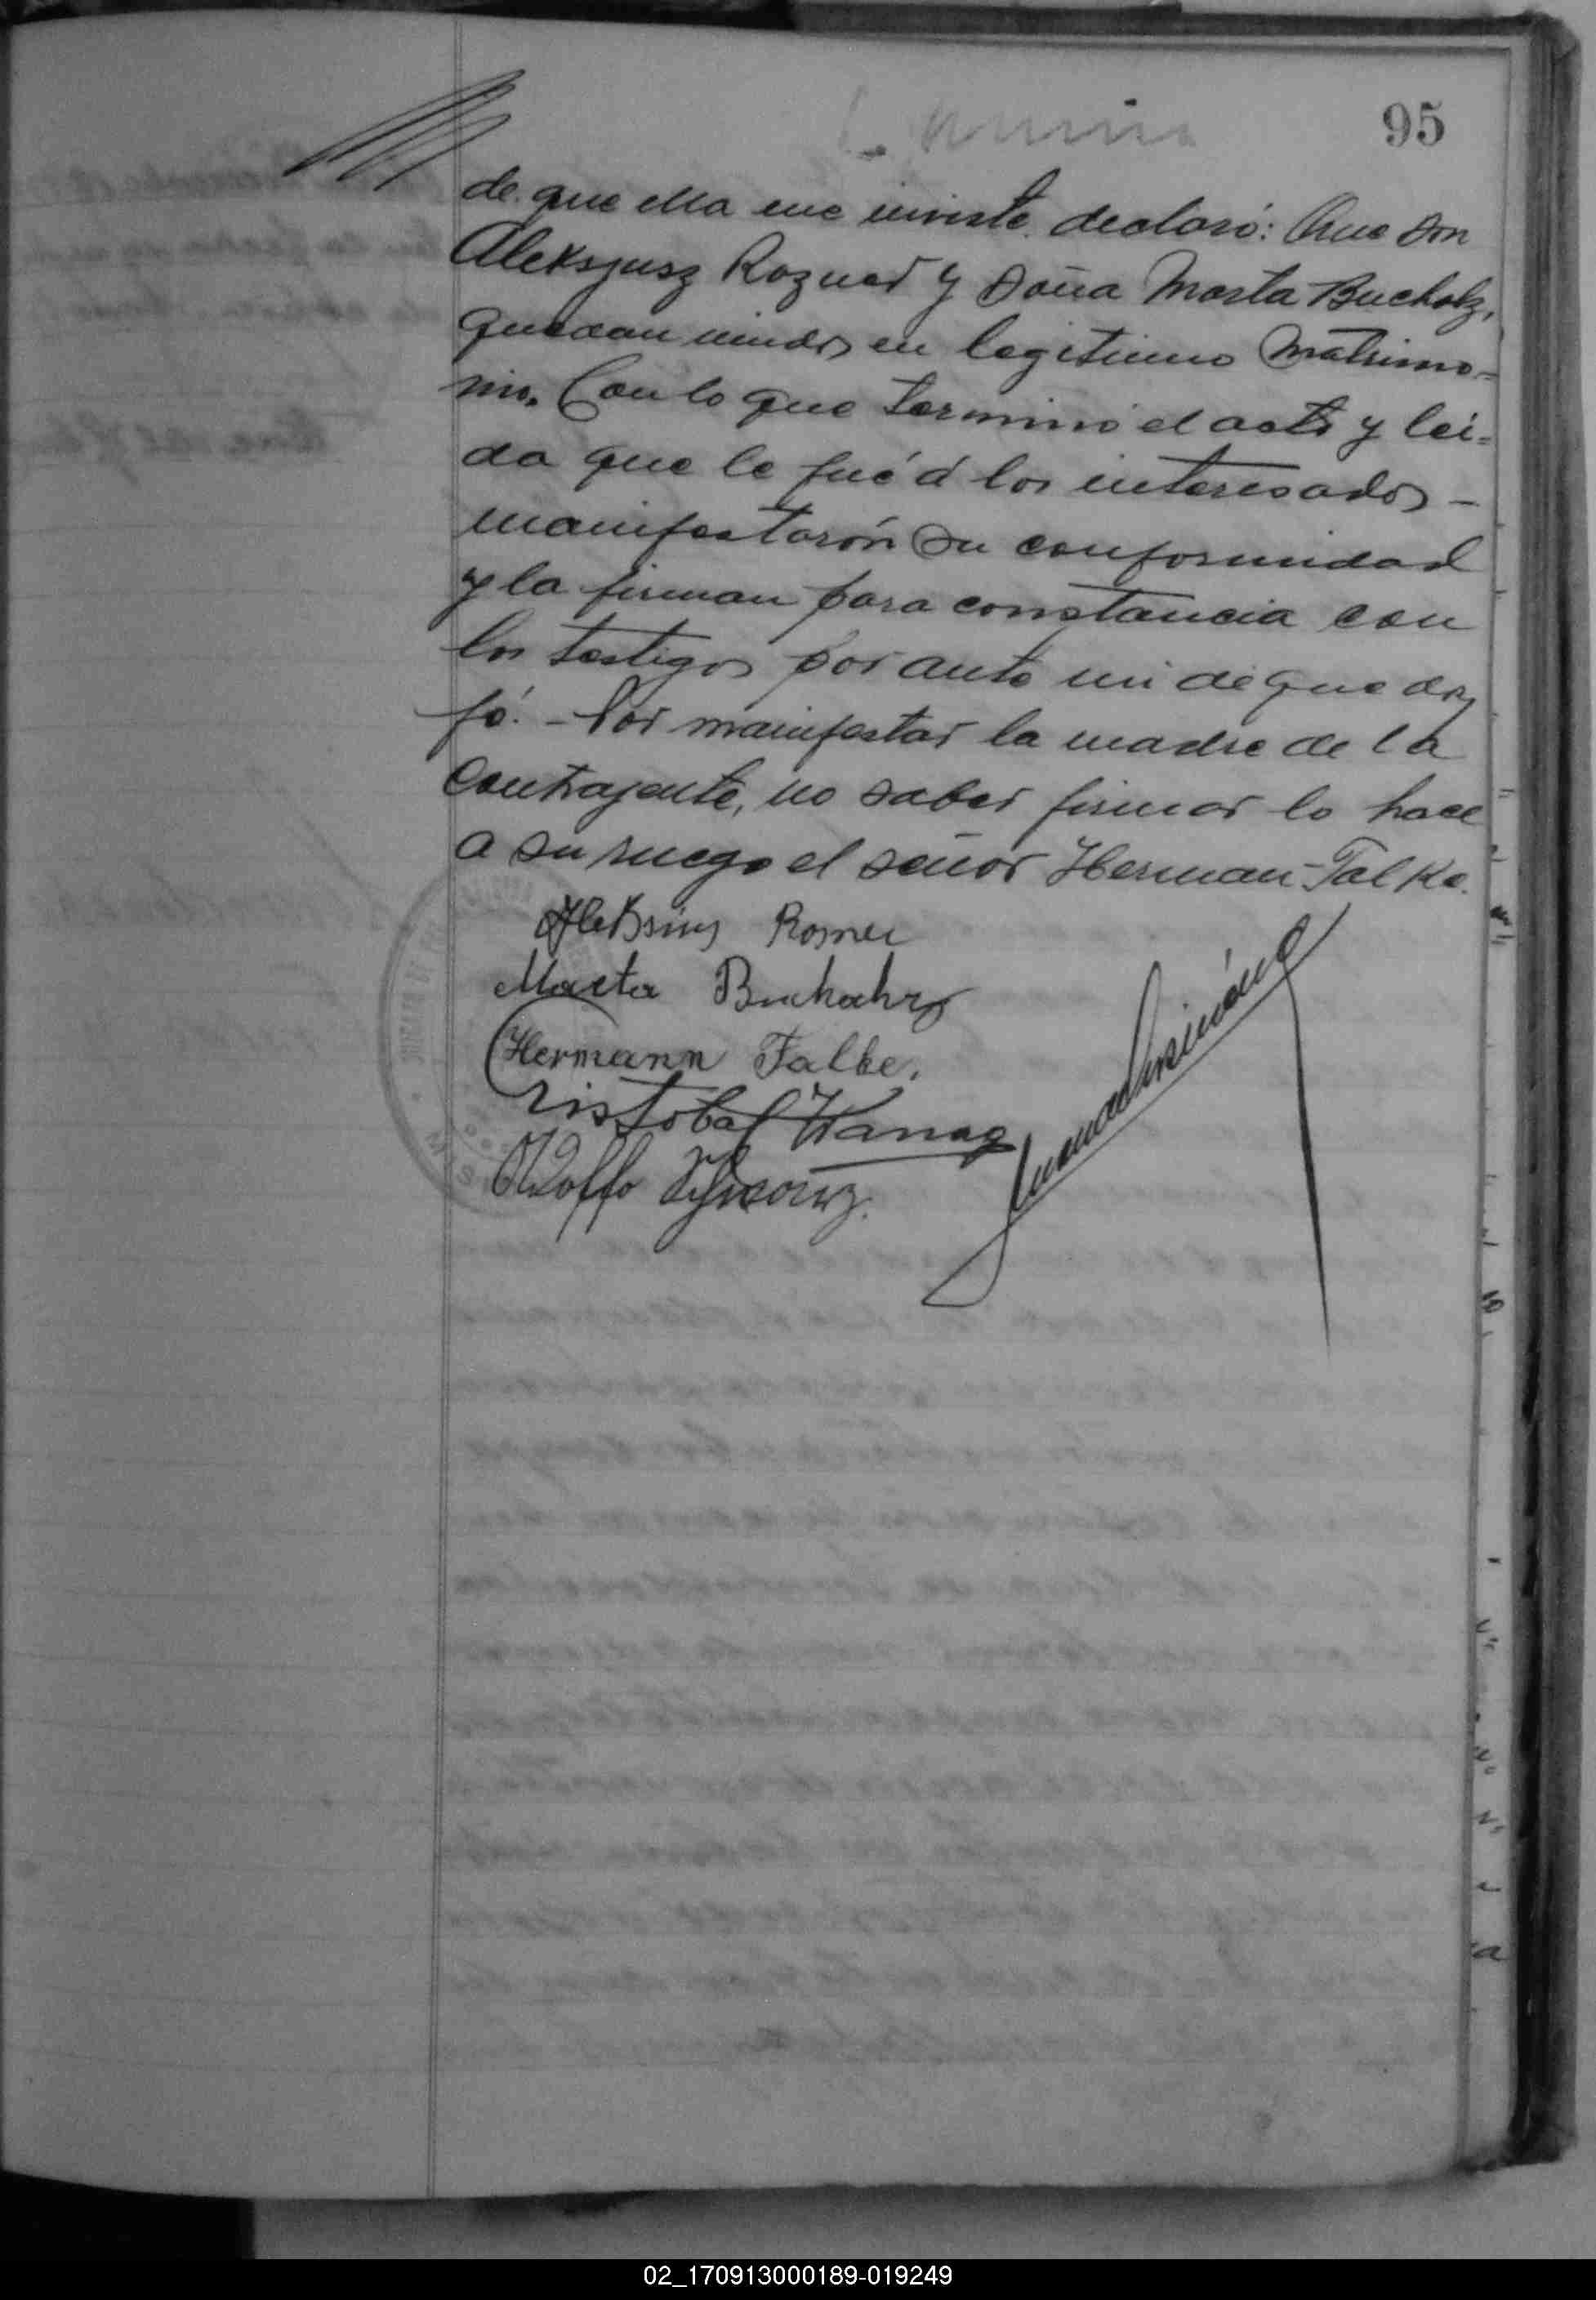 95
de que ella me inviste declaró: Que don
Aleksyusz Rozner y doña Marta Bucholz,
quedan unidos en legitimo Matrimo=
nio. Con lo que terminó el acto y leí=
da que le fué á los interesados -
manifestarón su conformidad
y la firman para constancia con
los testigos por ante mi de que doy
fé. - Por manifestar la madre de la
Contrayente, no saber firmar lo hace
a su ruego el señor Herman Falke.
Romer
Marta
Hermann Falke.
Cristobal Wanag
Adolfo
02_170913000189-019249